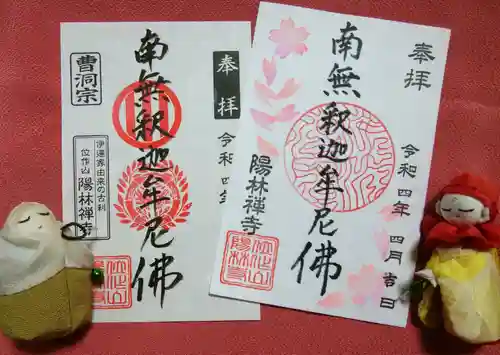 奉拝
令和四年 四月吉日
南無釋迦牟尼佛
陽林禅寺
奉拝
令和四年
南無釋迦牟尼佛
曹洞宗
伊達家由来の古刹
位作山 陽林禅寺